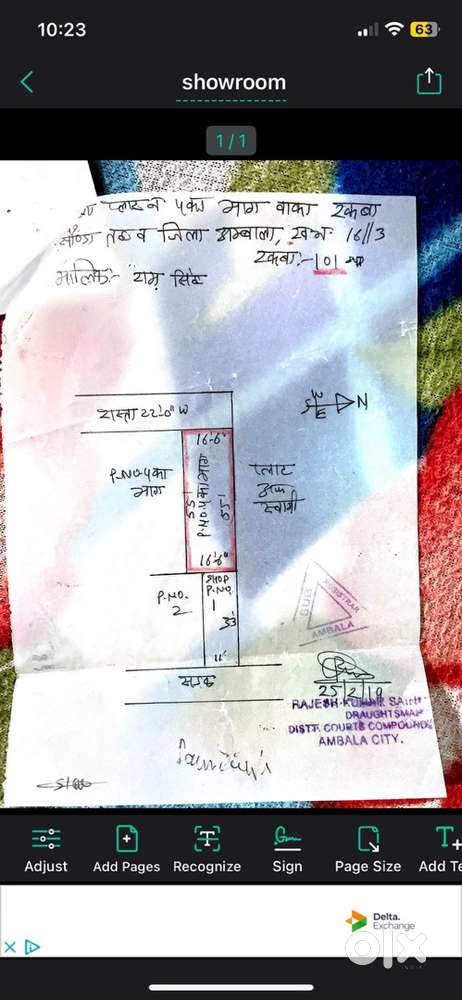 10:23
63
showroom
1/1
प्लाट नं ५का भाग वाका रकबा
व जिला अम्बाला, ख०न० 16//3
रकबा:- 101
मालिक:- राम सिंह
रास्ता 22'-0" W
W
S N
E
16'-6"
P.NO.५का
भाग
55'
P.NO.५का भाग
55'
प्लाट
अन्य
स्वामी
16'-6"
P.NO.
2
SHOP
P.NO.
1
33'
11'
सड़क
SUB
REGISTRAR
AMBALA
25/2/19
RAJESH KUMAR SAINI
DRAUGHTSMAN
DISTT. COURTS COMPOUND
AMBALA CITY.
Adjust
Add Pages
Recognize
Sign
Page Size
Add Te
Delta.
Exchange
olx
INDIA